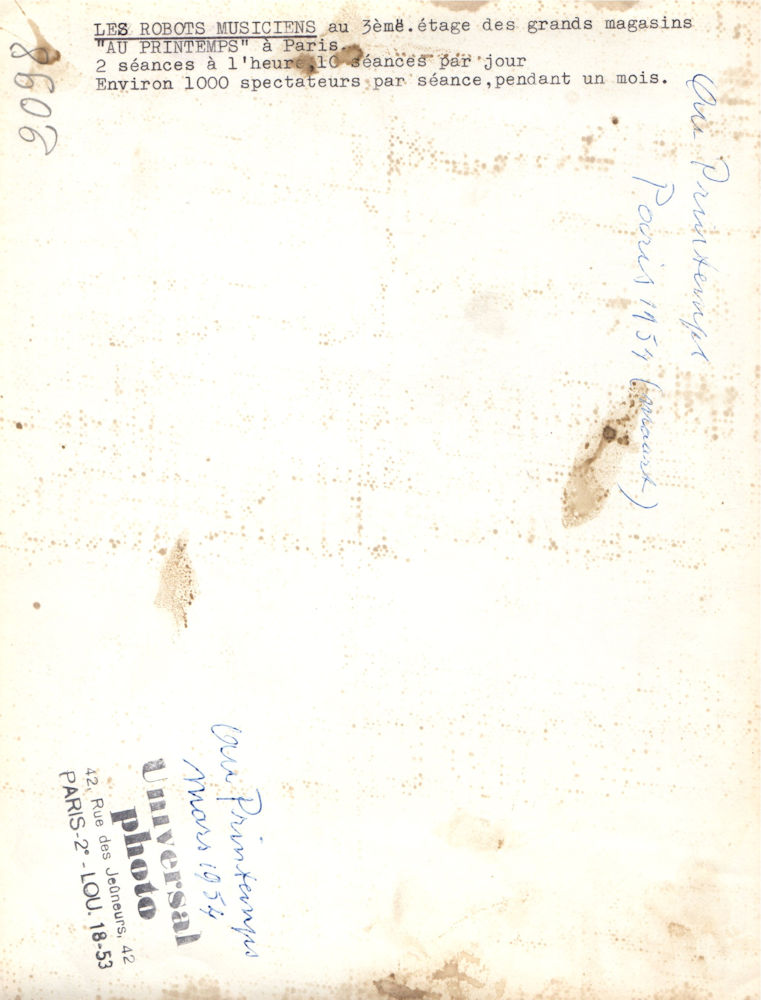 LES ROBOTS MUSICIENS au 3ème.étage des grands magasins
"AU PRINTEMPS" à Paris.
2 séances à l'heure,10 séances par jour
Environ 1000 spectateurs par séance,pendant un mois.
Au Printemps
Paris 1954
Au Printemps
mars 1954
Universal
photo
42, Rue des Jeûneurs, 42
PARIS-2e - LOU. 18-53